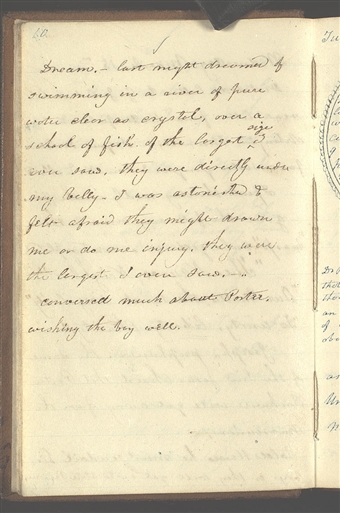 60.
Dream. - last night dreamed of
swimming in a river of pure
water clear as crystal, over a
school of fish of the largest size I
ever saw. they were directly under
my belly - I was astonished &
felt afraid they might drown
me or do me injury. they were
the largest I ever saw. -
conversed much about Porter.
wishing the boy well.